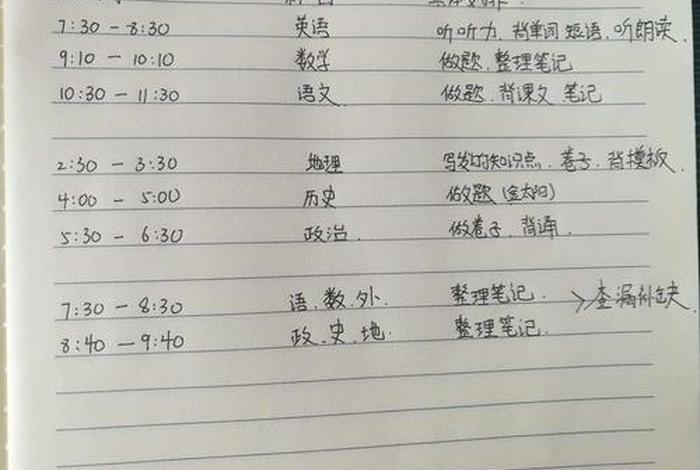 7:30 - 8:30 英语 听听力、背单词 短语、听朗读、
9:10 - 10:10 数学 做题、整理笔记
10:30 - 11:30 语文 做题、背课文 笔记
2:30 - 3:30 地理 写发的知识点、卷子、背模板、
4:00 - 5:00 历史 做题（金太阳）
5:30 - 6:30 政治、 做卷子、背诵、
7:30 - 8:30 语、数、外、 整理笔记、 > 查漏补缺、
8:40 - 9:40 政、史、地、 整理笔记、